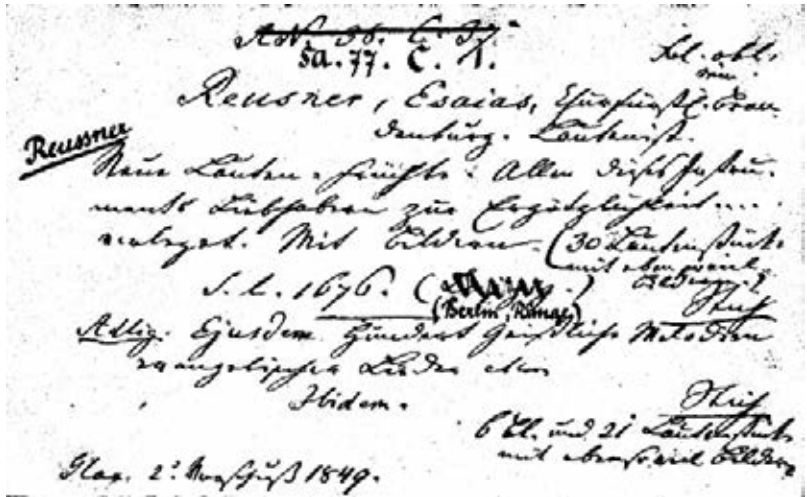 SA. 77. C. 1.
Reusner, Esaias, Churfürstl. Bran-
denburg. Lautenist.
Reussner
Neue Lauten-Früchte: Allen dieses Instru-
ments Liebhabern zur Ergötzlichkeit....
verleget. Mit Bildern. (30 Lautenstücke
mit ebensoviel Bildern.)
S. l. 1676.
(Berlin, Runge)
Adlig. Ejusdem Hundert Geistliche Melodien
evangelischer Lieder
Ibidem.
6 Bl. und 21 Lautenstücke
mit ebensoviel Bildern
1849.